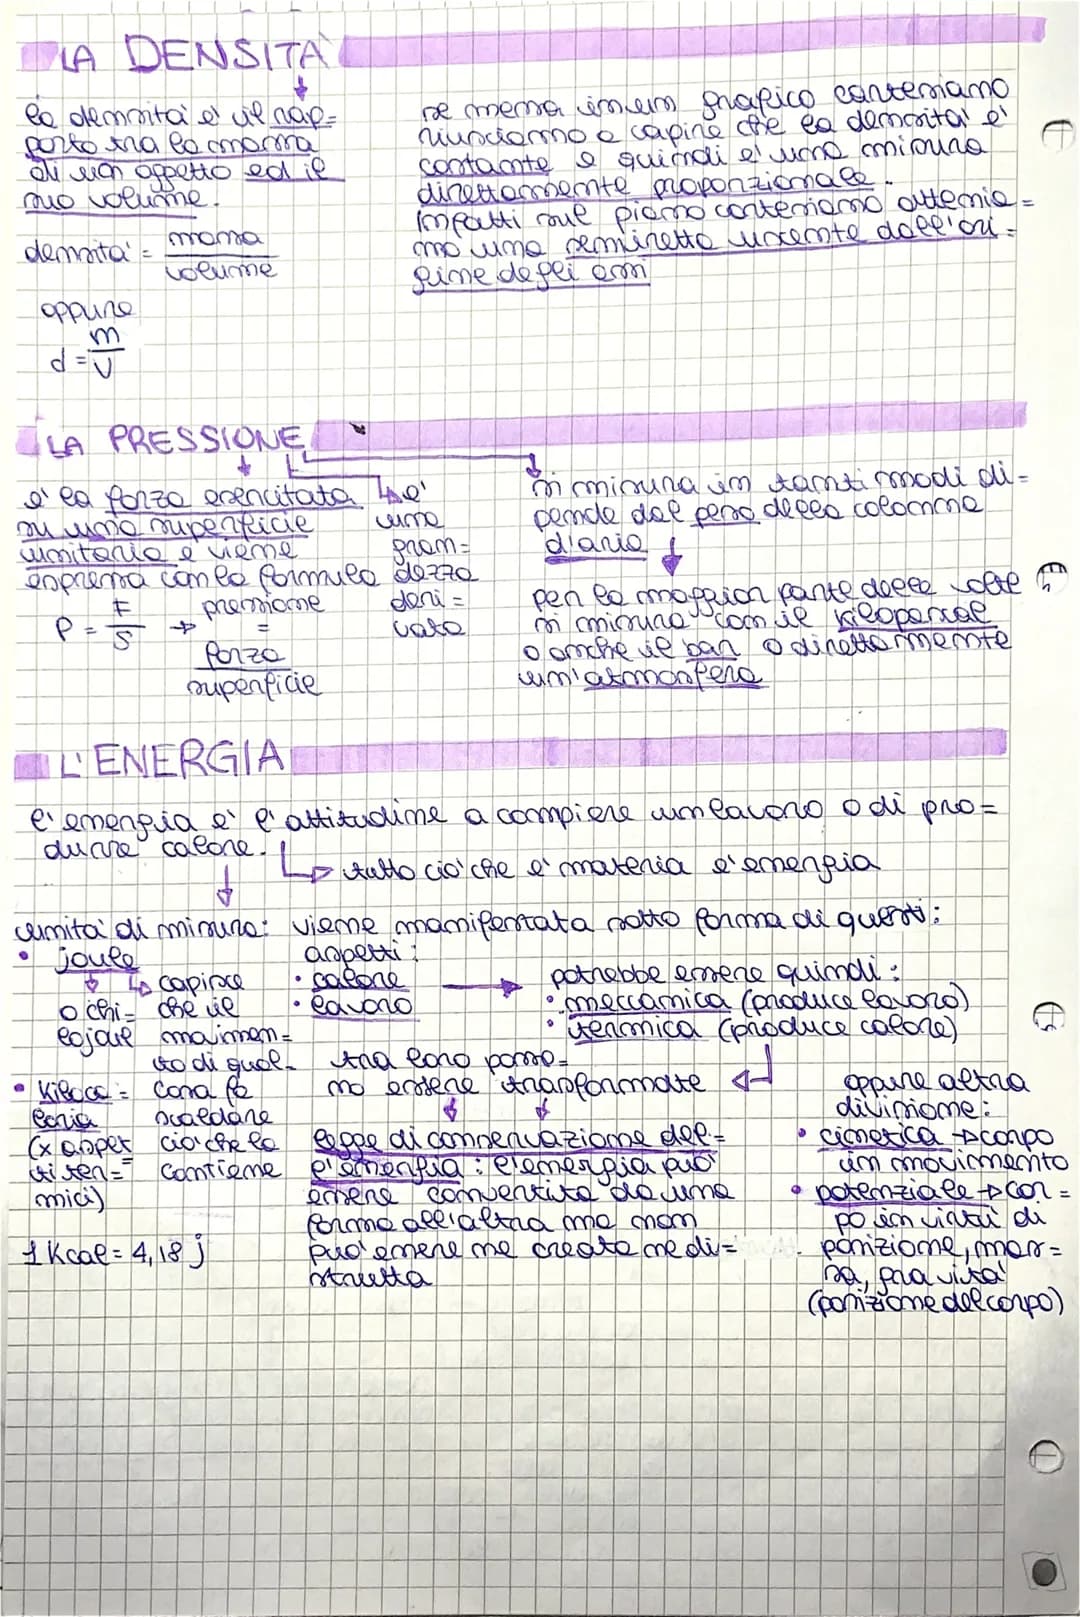 LA DENSITÀ
la densità è il rap=
porto tra la massa
di un oggetto ed il
suo volume.
densità = massa
volume
oppure
d = m
V
se messa in un grafico cartesiano
riusciamo a capire che la densità è
costante e quindi è una misura
direttamente proporzionale.
Infatti sul piano cartesiano ottenia=
mo una semiretta uscente dall'ori=
gine degli assi
LA PRESSIONE
è la forza esercitata
su una superficie
unitaria e viene
espressa con la formula
P = F
S
→ pressione
=
forza
superficie
è
una
gran=
dezza
deri=
vata
si misura in tanti modi di=
pende dal peso della colonna
d'aria
per la maggior parte delle volte
si misura con il kilopascal
o anche il bar o direttamente
un'atmosfera
L'ENERGIA
l'energia è l'attitudine a compiere un lavoro o di pro=
durre calore.
→ tutto ciò che è materia è energia
unità di misura:
• joule
o chi=
lojoule
capisce
che il
movimen=
to di qual=
cosa fa
scaldare
ciò che lo
contiene
• kiloca=
loria
(x aspet
ti ter=
mici)
1 Kcal = 4,18 j
viene manifestata sotto forma di questi:
aspetti:
• calore
• lavoro
→ potrebbe essere quindi:
• meccanica (produce lavoro)
• termica (produce calore)
tra loro posso=
no essere trasformate
legge di conservazione del=
l'energia: l'energia può
essere convertita da una
forma all'altra ma non
può essere ne creata ne di=
strutta
oppure altra
divisione:
• cinetica → corpo
in movimento
• potenziale → cor=
po in virtù di
posizione, mas=
sa, gravità
(posizione del corpo)